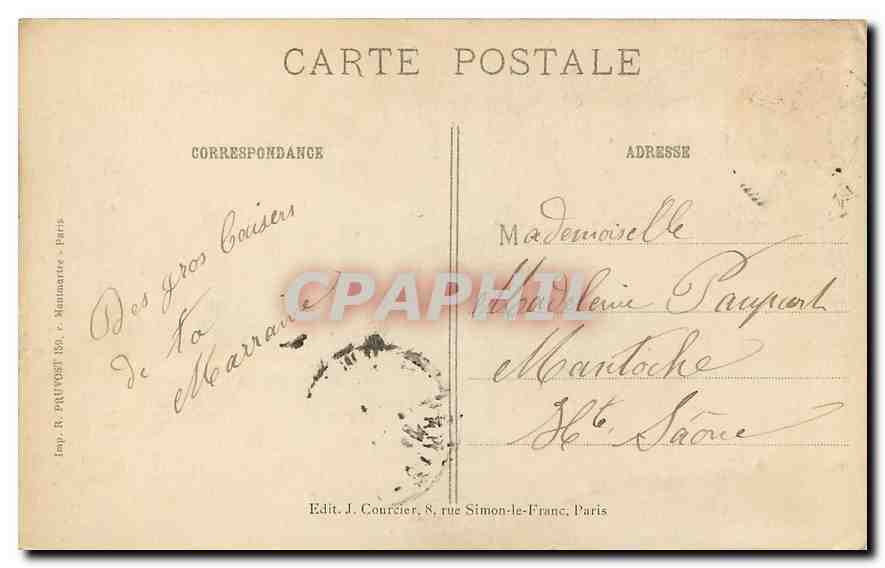 CARTE POSTALE
CORRESPONDANCE
ADRESSE
Des gros baisers
de ta
Marraine
Mademoiselle
Madeleine Paupart
Mantoche
Hte Saône
Imp. R. PRUVOST 159, r. Montmartre - Paris.
Edit. J. Courcier, 8, rue Simon-le-Franc, Paris
CPAPHIL